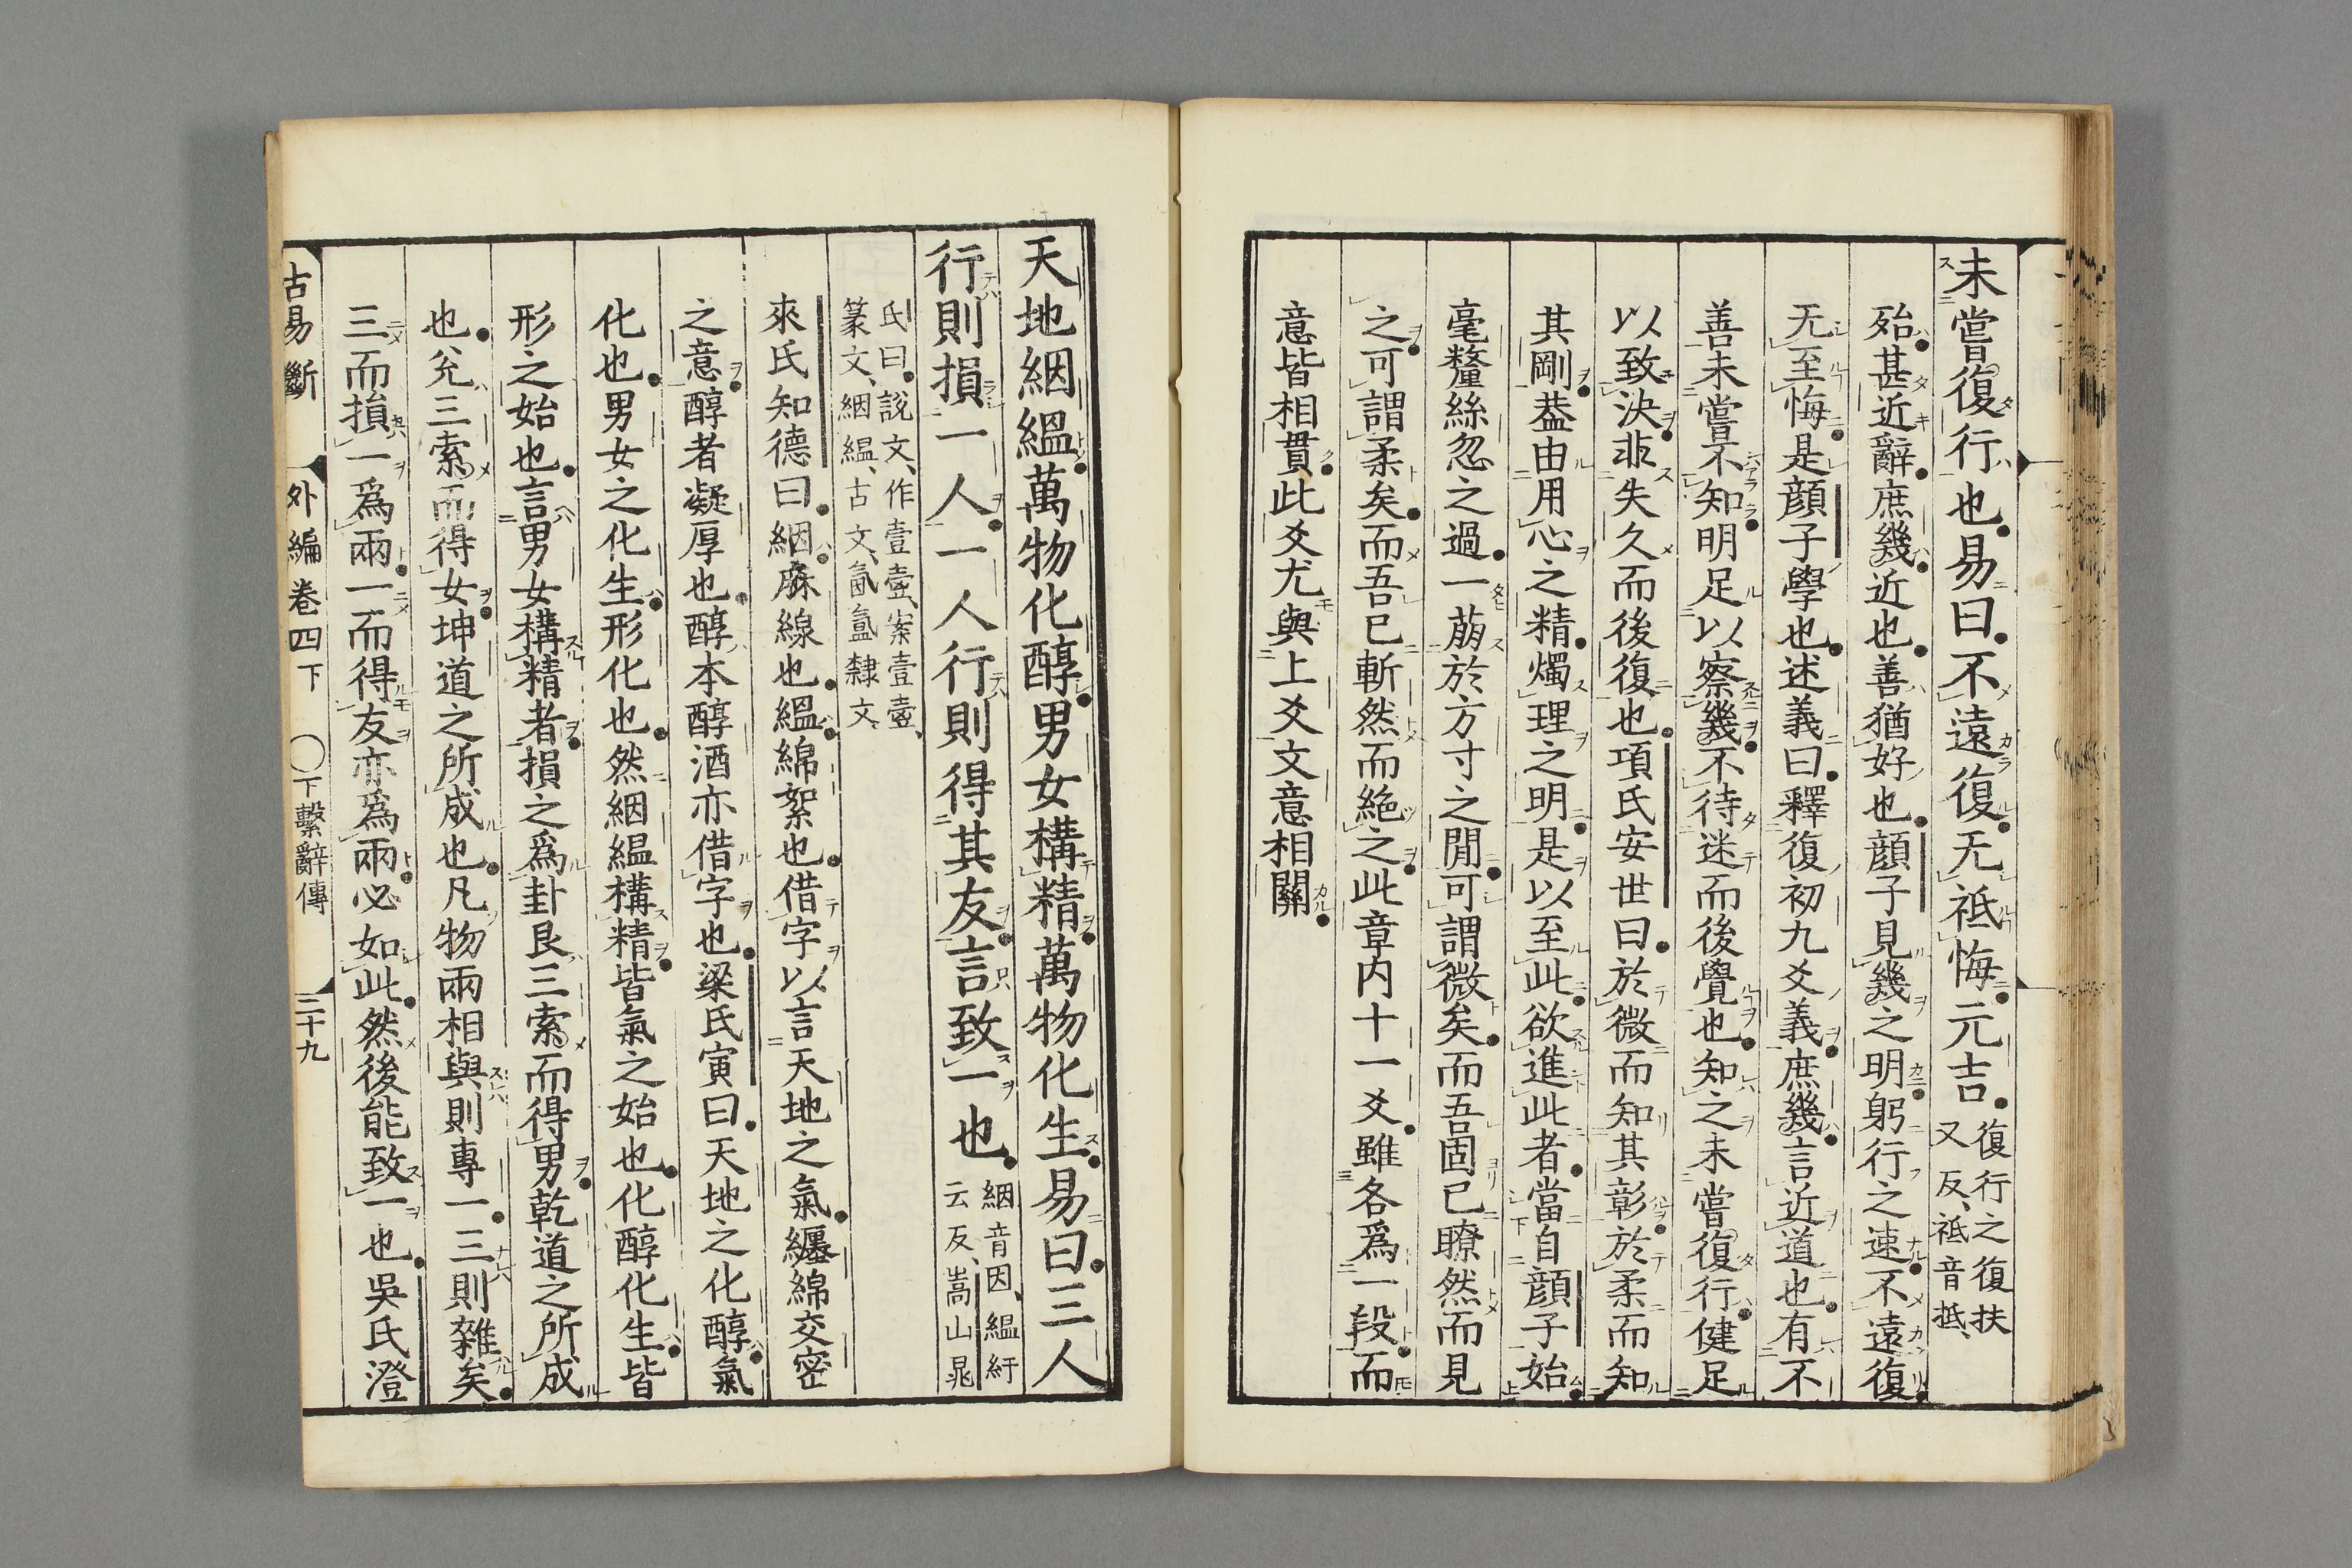 未嘗復行也易曰不遠復无祗悔元吉復行之復扶
又反祗音抵
殆甚近辭庶幾近也善猶好也顔子見幾之明躬行之速不遠復
无至悔是顔子學也述義曰釋復初九爻義庶幾言近道也有不
善未嘗不知明足以察幾不待迷而後覺也知之未嘗復行健足
以致決非失久而後復也項氏安世曰於微而知其彰於柔而知
其剛葢由用心之精燭理之明是以至此欲進此者當自顔子始
毫釐絲忽之過一萠於方寸之閒可謂微矣而吾固已瞭然而見
之可謂柔矣而吾已斬然而絶之此章内十一爻雖各爲一段而
意皆相貫此爻尤與上爻文意相關
天地絪緼萬物化醇男女構精萬物化生易曰三人
行則損一人一人行則得其友言致一也絪音因緼紆
云反嵩山晁
氏曰說文作壹壼案壹壼
篆文絪緼古文氤氳隸文
來氏知德曰絪麻線也緼綿絮也借字以言天地之氣纏綿交密
之意醇者凝厚也醇本醇酒亦借字也梁氏寅曰天地之化醇氣
化也男女之化生形化也然絪緼構精皆氣之始也化醇化生皆
形之始也言男女構精者損之爲卦艮三索而得男乾道之所成
也兊三索而得女坤道之所成也凡物兩相與則專一三則雜矣
三而損一爲兩一而得友亦爲兩必如此然後能致一也吳氏澄
古易斷 外編卷四下 ○下繫辭傳 三十九